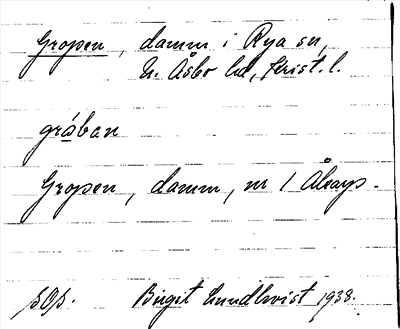 Gropen, damm i Rya sn,
N. Åsbo hd, Krist. l.
gråban
Gropen, damm, nr 1 Åkarps.
pOp. Birgit Lundkvist 1938.